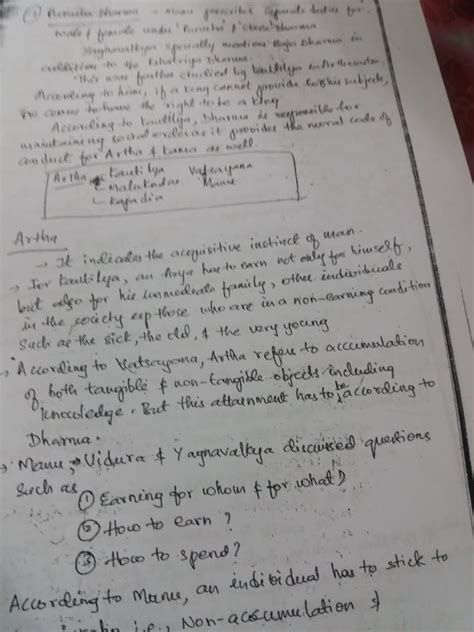 ① Purusha Dharma - Manu prescribes separate duties for
male & female under 'Purusha' & 'Stree' Dharma
Yagnavalkya specially mentions Raja Dharma in
addition to the Kshatriya Dharma.
This was further studied by Kautilya in Arthasastra.
According to him, if a king cannot provide for his subjects,
he ceases to have the right to be a king
According to Kautilya, Dharma is responsible for
maintaining social order as it provides the moral code of
conduct for Artha & Kama as well.
Artha Kautilya Vatsayana
Malakadas Manu
Kapadia
Artha
→ It indicates the acquisitive instinct of man.
→ For Kautilya, an Arya has to earn not only for himself,
but also for his immediate family, other individuals
in the society esp those who are in a non-earning condition
such as the sick, the old, & the very young
→ According to Vatsayana, Artha refers to accumulation
of both tangible & non-tangible objects including
knowledge. But this attainment has to be according to
Dharma.
→ Manu, Vidura & Yagnavalkya discussed questions
such as
① Earning for whom & for what?
② How to earn ?
③ How to spend?
According to Manu, an individual has to stick to
i.e., Non-accumulation &